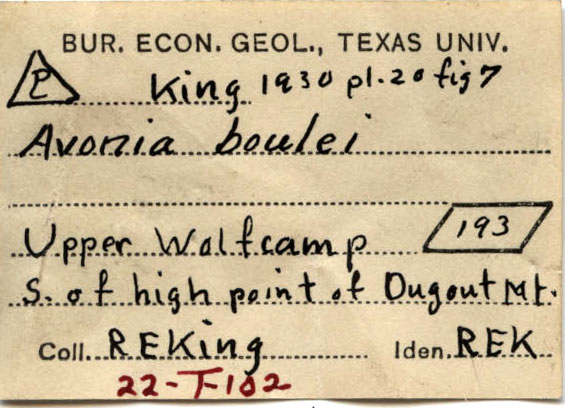 BUR. ECON. GEOL., TEXAS UNIV.
P King 1930 pl. 20 fig 7
Avonia boulei
Upper Wolfcamp 193
S. of high point of Dugout Mt.
Coll. REKing Iden. REK
22-T-102